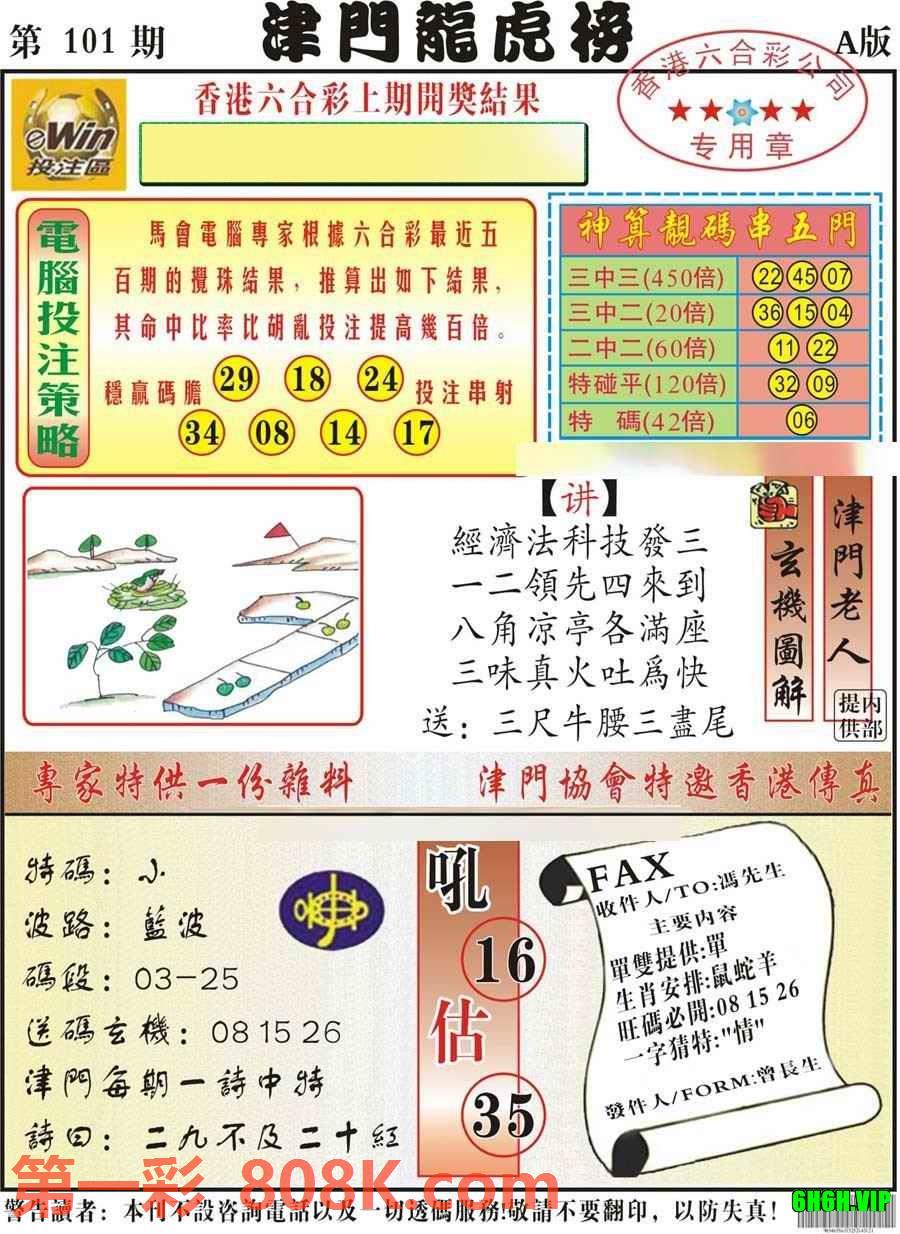 第 101 期
津門龍虎榜
A版
eWin
投注區
香港六合彩上期開獎結果
香港六合彩公司
专用章
電腦投注策略
馬會電腦專家根據六合彩最近五
百期的攪珠結果，推算出如下結果，
其命中比率比胡亂投注提高幾百倍。
穩贏碼膽 29 18 24 投注串射
34 08 14 17
神算靚碼串五門
三中三(450倍) 22 45 07
三中二(20倍) 36 15 04
二中二(60倍) 11 22
特碰平(120倍) 32 09
特 碼(42倍) 06
【讲】
經濟法科技發三
一二領先四來到
八角凉亭各滿座
三味真火吐爲快
送：三尺牛腰三盡尾
玄機圖解
津門老人
内部提供
專家特供一份雜料
津門協會特邀香港傳真
特碼：小
波路：藍波
碼段：03-25
送碼玄機：08 15 26
津門每期一詩中特
詩曰：二九不及二十紅
吼
16
估
35
FAX
收件人/TO:馮先生
主要内容
單雙提供:單
生肖安排:鼠蛇羊
旺碼必開:08 15 26
一字猜特:"情"
發件人/FORM:曾長生
第一彩 808K.com
警告讀者：本刊不設咨詢電話以及一切透碼服務!敬請不要翻印，以防失真！
6H6H.VIP